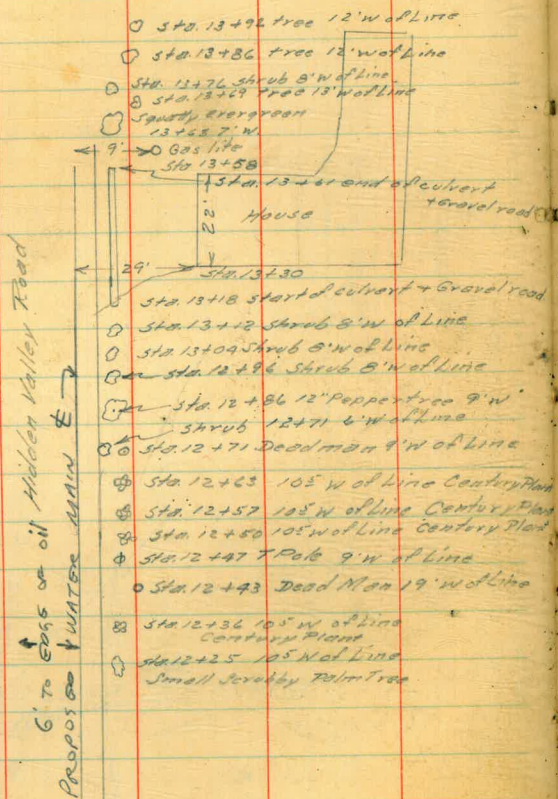 Sta. 13+92 tree 12' w of Line
Sta. 13+86 tree 12' w of Line
Sta. 13+76 Shrub 8' w of Line
Sta. 13+69 tree 13' w of Line
Squatty evergreen
13+65 7' W.
9' Gas lite
Sta 13+58
Sta. 13+61 end of culvert
+ Gravel road
House
22'
29'
Sta. 13+30
Sta. 13+18 Start of culvert + Gravel road
Sta. 13+12 Shrub 8' w of Line
Sta. 13+04 Shrub 8' w of Line
Sta. 12+96 Shrub 8' w of Line
Sta. 12+86 12" Peppertree 9' w
Shrub 12+71 6' w of Line
Sta. 12+71 Deadman 9' w of Line
Sta. 12+63 10⁵ w of Line Century Plant
Sta. 12+57 10⁵ w of Line Century Plant
Sta. 12+50 10⁵ w of Line Century Plant
Sta. 12+47 T Pole 9' w of Line
Sta. 12+43 Dead Man 19' w of Line
Sta. 12+36 10⁵ w of Line
Century Plant
Sta. 12+25 10⁵ W of Line
Small Scrubby Palm Tree
6' TO EDGE OF OIL Hidden Valley Road
PROPOSED WATER MAIN ℄